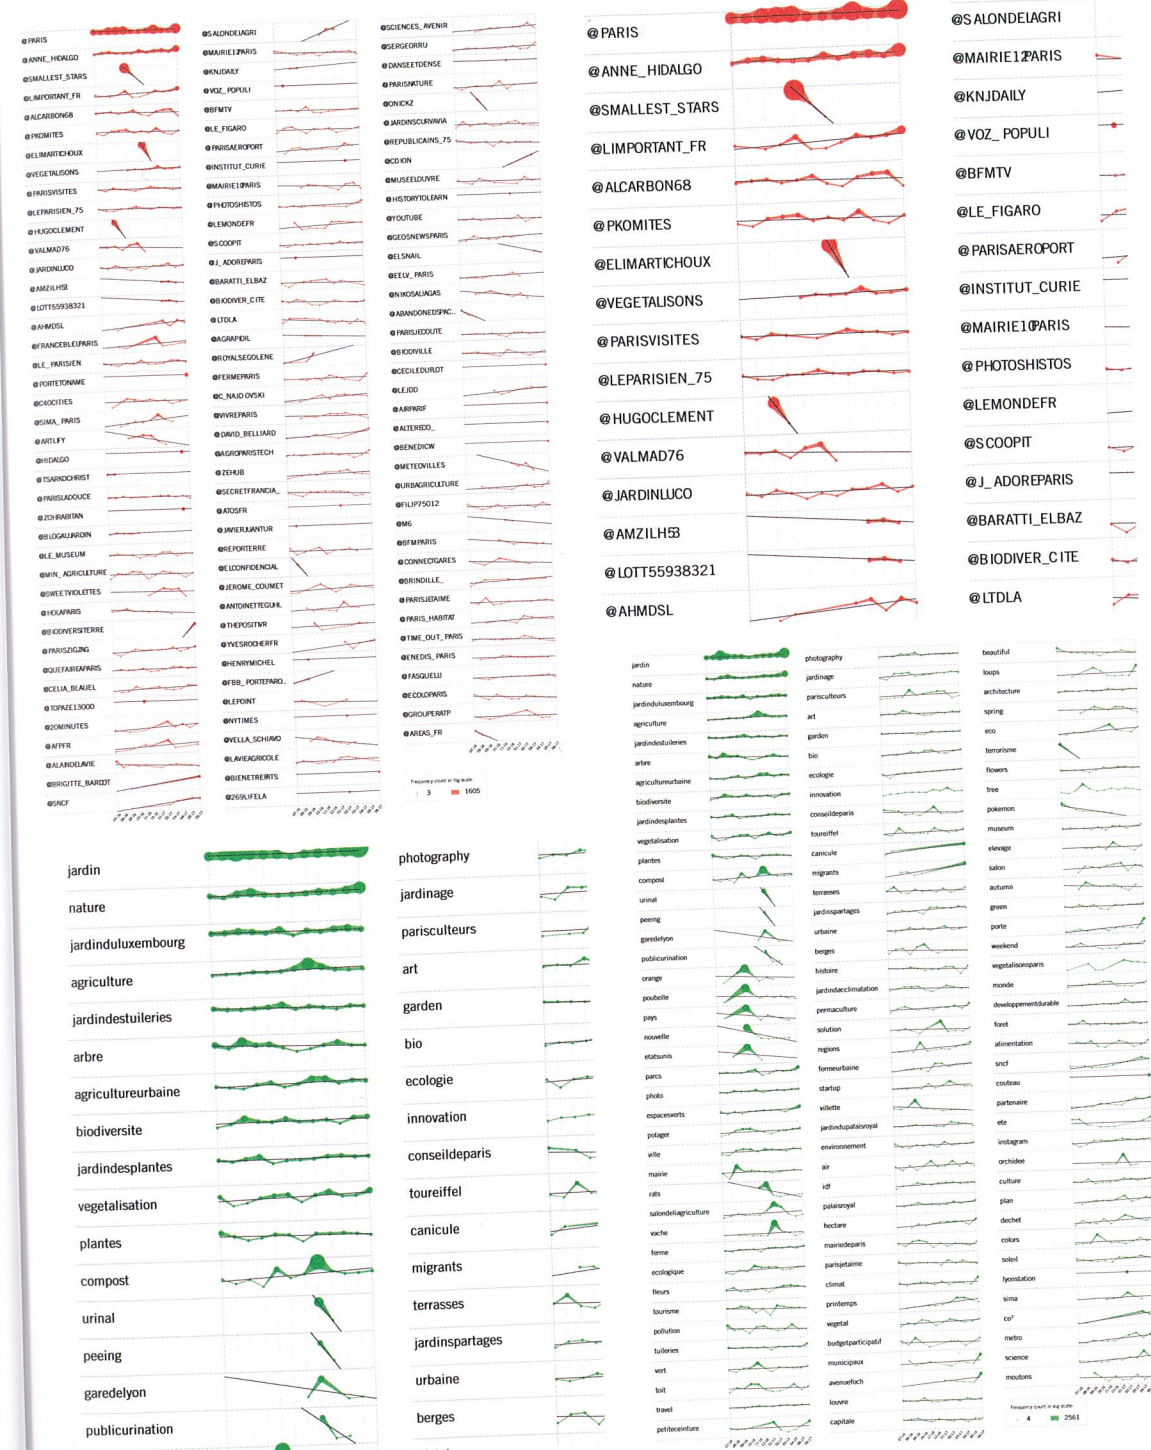 @PARIS
@ANNE_HIDALGO
@SMALLEST_STARS
@LIMPORTANT_FR
@ALCARBON68
@PKOMITES
@ELIMARTICHOUX
@VEGETALISONS
@PARISVISITES
@LEPARISIEN_75
@HUGOCLEMENT
@VALMAD76
@JARDINLUCO
@AMZILH53
@LOTT55938321
@AHMDSL
@FRANCEBLEUPARIS
@LE_PARISIEN
@PORTETONAME
@C40CITIES
@SIMA_PARIS
@ARTLIFY
@HIDALGO
@TSARKOCHRIST
@PARISLADOUCE
@ZOHRABITAN
@BLOGAUJARDIN
@LE_MUSEUM
@MIN_AGRICULTURE
@SWEETVIOLETTES
@HOLAPARIS
@BIODIVERSITERRE
@PARISZIGZAG
@QUEFAIREAPARIS
@CELIA_BLAUEL
@TOPAZE13000
@20MINUTES
@AFPFR
@ALAINDELAVIE
@BRIGITTE_BARDOT
@SNCF
@SALONDELAGRI
@MAIRIE12PARIS
@KNJDAILY
@VOZ_POPULI
@BFMTV
@LE_FIGARO
@PARISAEROPORT
@INSTITUT_CURIE
@MAIRIE10PARIS
@PHOTOSHISTOS
@LEMONDEFR
@SCOOPIT
@J_ADOREPARIS
@BARATTI_ELBAZ
@BIODIVER_CITE
@LTDLA
@AGRAPIDIL
@ROYALSEGOLENE
@FERMEPARIS
@C_NAJDOVSKI
@VIVREPARIS
@DAVID_BELLIARD
@AGROPARISTECH
@ZEHUB
@SECRETFRANCIA_
@ATOSFR
@JAVIERJUANTUR
@REPORTERRE
@ELCONFIDENCIAL
@JEROME_COUMET
@ANTOINETTEGUHL
@THEPOSITIVR
@YVESROCHERFR
@HENRYMICHEL
@FBB_PORTEPARO..
@LEPOINT
@NYTIMES
@VELLA_SCHIAVO
@LAVIEAGRICOLE
@BIENETRERRTS
@269LIFELA
@SCIENCES_AVENIR
@SERGEORRU
@DANSEETDENSE
@PARISNATURE
@ONICKZ
@JARDINSCURVAVIA
@REPUBLICAINS_75
@CDION
@MUSEELOUVRE
@HISTORYTOLEARN
@YOUTUBE
@GEOSNEWSPARIS
@ELSNAIL
@EELV_PARIS
@NIKOSALIAGAS
@ABANDONEDSPAC..
@PARISJECOUTE
@BIODIVILLE
@CECILEDUFLOT
@LEJDD
@AIRPARIF
@ALTERECO_
@BENEDICW
@METEOVILLES
@URBAGRICULTURE
@FILIP75012
@M6
@BFMPARIS
@CONNECTGARES
@BRINDILLE_
@PARISJETAIME
@PARIS_HABITAT
@TIME_OUT_PARIS
@ENEDIS_PARIS
@FASQUELU
@ECOLOPARIS
@GROUPERATP
@AREAS_FR
Frequency count in log scale:
3 1605
@PARIS
@ANNE_HIDALGO
@SMALLEST_STARS
@LIMPORTANT_FR
@ALCARBON68
@PKOMITES
@ELIMARTICHOUX
@VEGETALISONS
@PARISVISITES
@LEPARISIEN_75
@HUGOCLEMENT
@VALMAD76
@JARDINLUCO
@AMZILH53
@LOTT55938321
@AHMDSL
@SALONDELAGRI
@MAIRIE12PARIS
@KNJDAILY
@VOZ_POPULI
@BFMTV
@LE_FIGARO
@PARISAEROPORT
@INSTITUT_CURIE
@MAIRIE10PARIS
@PHOTOSHISTOS
@LEMONDEFR
@SCOOPIT
@J_ADOREPARIS
@BARATTI_ELBAZ
@BIODIVER_CITE
@LTDLA
jardin
nature
jardinduluxembourg
agriculture
jardindestuileries
arbre
agricultureurbaine
biodiversite
jardindesplantes
vegetalisation
plantes
compost
urinal
peeing
garedelyon
publicurination
photography
jardinage
parisculteurs
art
garden
bio
ecologie
innovation
conseildeparis
toureiffel
canicule
migrants
terrasses
jardinspartages
urbaine
berges
jardin
nature
jardinduluxembourg
agriculture
jardindestuileries
arbre
agricultureurbaine
biodiversite
jardindesplantes
vegetalisation
plantes
compost
urinal
peeing
garedelyon
publicurination
orange
poubelle
pays
nouvelle
etatsunis
parcs
photo
espacesverts
potager
ville
mairie
rats
salondeliagriculture
vache
ferme
ecologique
fleurs
tourisme
pollution
tuileries
vert
toit
travel
petiteceinture
photography
jardinage
parisculteurs
art
garden
bio
ecologie
innovation
conseildeparis
toureiffel
canicule
migrants
terrasses
jardinspartages
urbaine
berges
histoire
jardindacclimatation
permaculture
solution
regions
fermeurbaine
startup
villette
jardindupalaisroyal
environnement
air
idf
palaisroyal
hectare
mairiedeparis
parisjetaime
climat
printemps
vegetal
budgetparticipatif
municipaux
avenuefoch
louvre
capitale
beautiful
loups
architecture
spring
eco
terrorisme
flowers
tree
pokemon
museum
elevage
salon
autumn
green
porte
weekend
vegetalisonsparis
monde
developpementdurable
foret
alimentation
sncf
couteau
partenaire
ete
instagram
orchidee
culture
plan
dechet
colors
soleil
lyonstation
sima
co²
metro
science
moutons
Frequency count in log scale:
4 2561